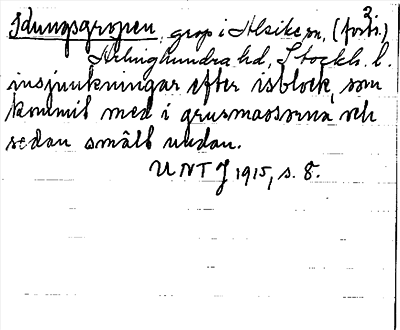 Idungsgropen, grop i Alsike sn, (forts.) 3
Ärlinghundra hd, Stockh. l.
insjunkningar efter isblock, som
kommit med i grusmassorna och
sedan smält undan.
UNT J 1915, s. 8.